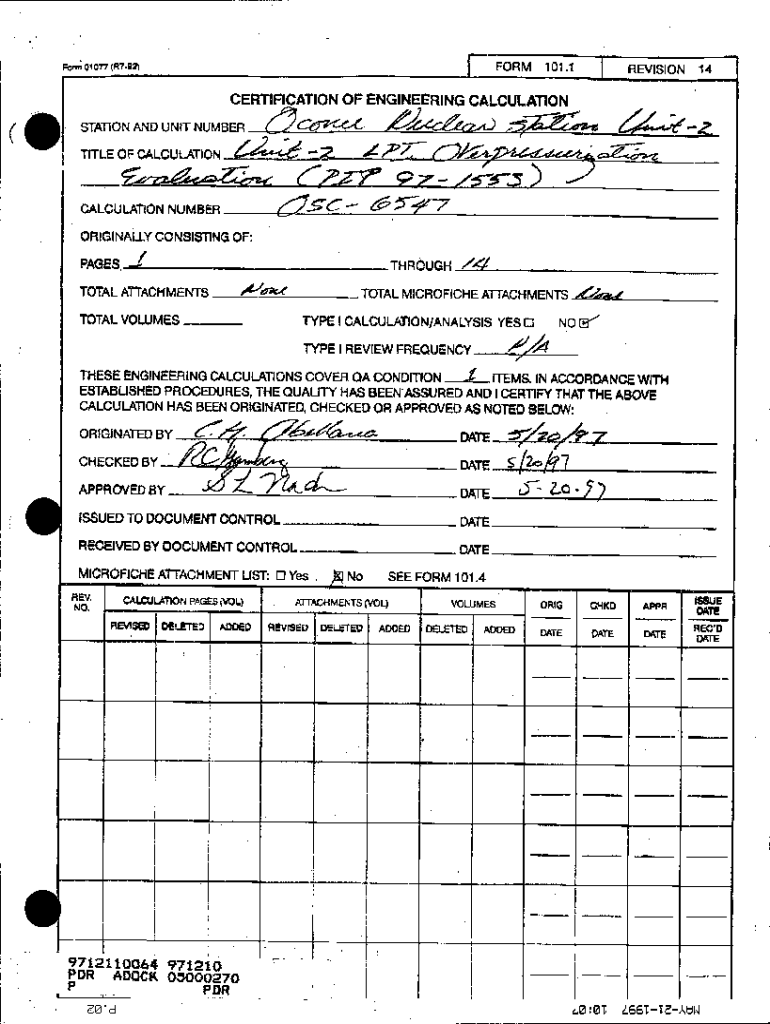 Form 01077 (R7-92)
FORM 101.1
REVISION 14
CERTIFICATION OF ENGINEERING CALCULATION
STATION AND UNIT NUMBER Oconee Nuclear Station Unit-2
TITLE OF CALCULATION Unit-2 LPT. Overpressurization
Evaluation (PIP 97-1553)
CALCULATION NUMBER OSC-6547
ORIGINALLY CONSISTING OF:
PAGES 1 THROUGH 14
TOTAL ATTACHMENTS None TOTAL MICROFICHE ATTACHMENTS None
TOTAL VOLUMES TYPE I CALCULATION/ANALYSIS YES NO
TYPE I REVIEW FREQUENCY N/A
THESE ENGINEERING CALCULATIONS COVER QA CONDITION 1 ITEMS. IN ACCORDANCE WITH
ESTABLISHED PROCEDURES, THE QUALITY HAS BEEN ASSURED AND I CERTIFY THAT THE ABOVE
CALCULATION HAS BEEN ORIGINATED, CHECKED OR APPROVED AS NOTED BELOW:
ORIGINATED BY C. H. Abellana DATE 5/20/97
CHECKED BY DATE 5/20/97
APPROVED BY S L Nader DATE 5-20-97
ISSUED TO DOCUMENT CONTROL DATE
RECEIVED BY DOCUMENT CONTROL DATE
MICROFICHE ATTACHMENT LIST: Yes No SEE FORM 101.4
REV. NO. CALCULATION PAGES (VOL) ATTACHMENTS (VOL) VOLUMES ORIG CHKD APPR ISSUE DATE
REVISED DELETED ADDED REVISED DELETED ADDED DELETED ADDED DATE DATE DATE REC'D DATE
9712110064 971210
PDR ADOCK 05000270
P PDR
P.02
MAY-21-1997 10:07